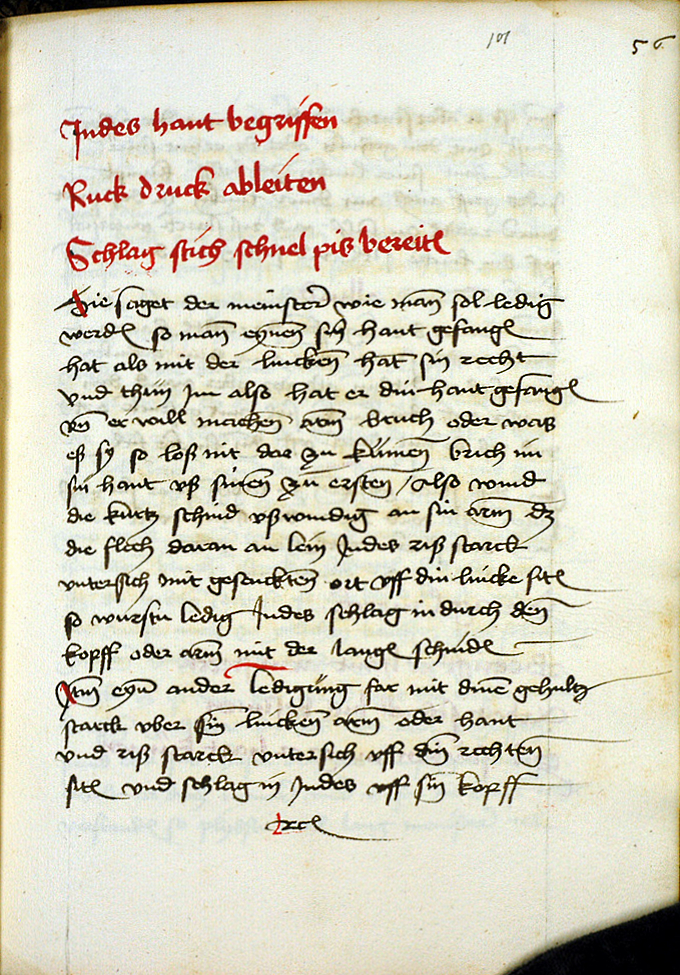 101
56
Indes hant begriffen
Ruck druck ableiten
Schlag stich schnel pis bereitẽ
Hie saget der meinster wie man sol ledig
werdẽ so man eynem sin hant gefangẽ
hat als mit der lincken hat sin recht
vnd thun Im also hat er din hant gefangẽ
vñ er will machen arm bruch oder was
eß sy so loß nit dar zu kumen brich im
sin hant vß sinen zu ersten / Also wind
die kurtz schnid vßwendig an sin arm dz
die flech daran an lein Indes riß starck
vntersich mit gesenckten ort vff din lincke sitẽ
so wurstu ledig Indes schlag in durch den
kopff oder arm mit der langẽ schnidẽ
Itm eyn ander ledigung far mit dinē gehultz
starck vber sin lincken arm oder hant
vnd riß starck vntersich vff din rechten
sitẽ vnd schlag in Indes vff sin kopff